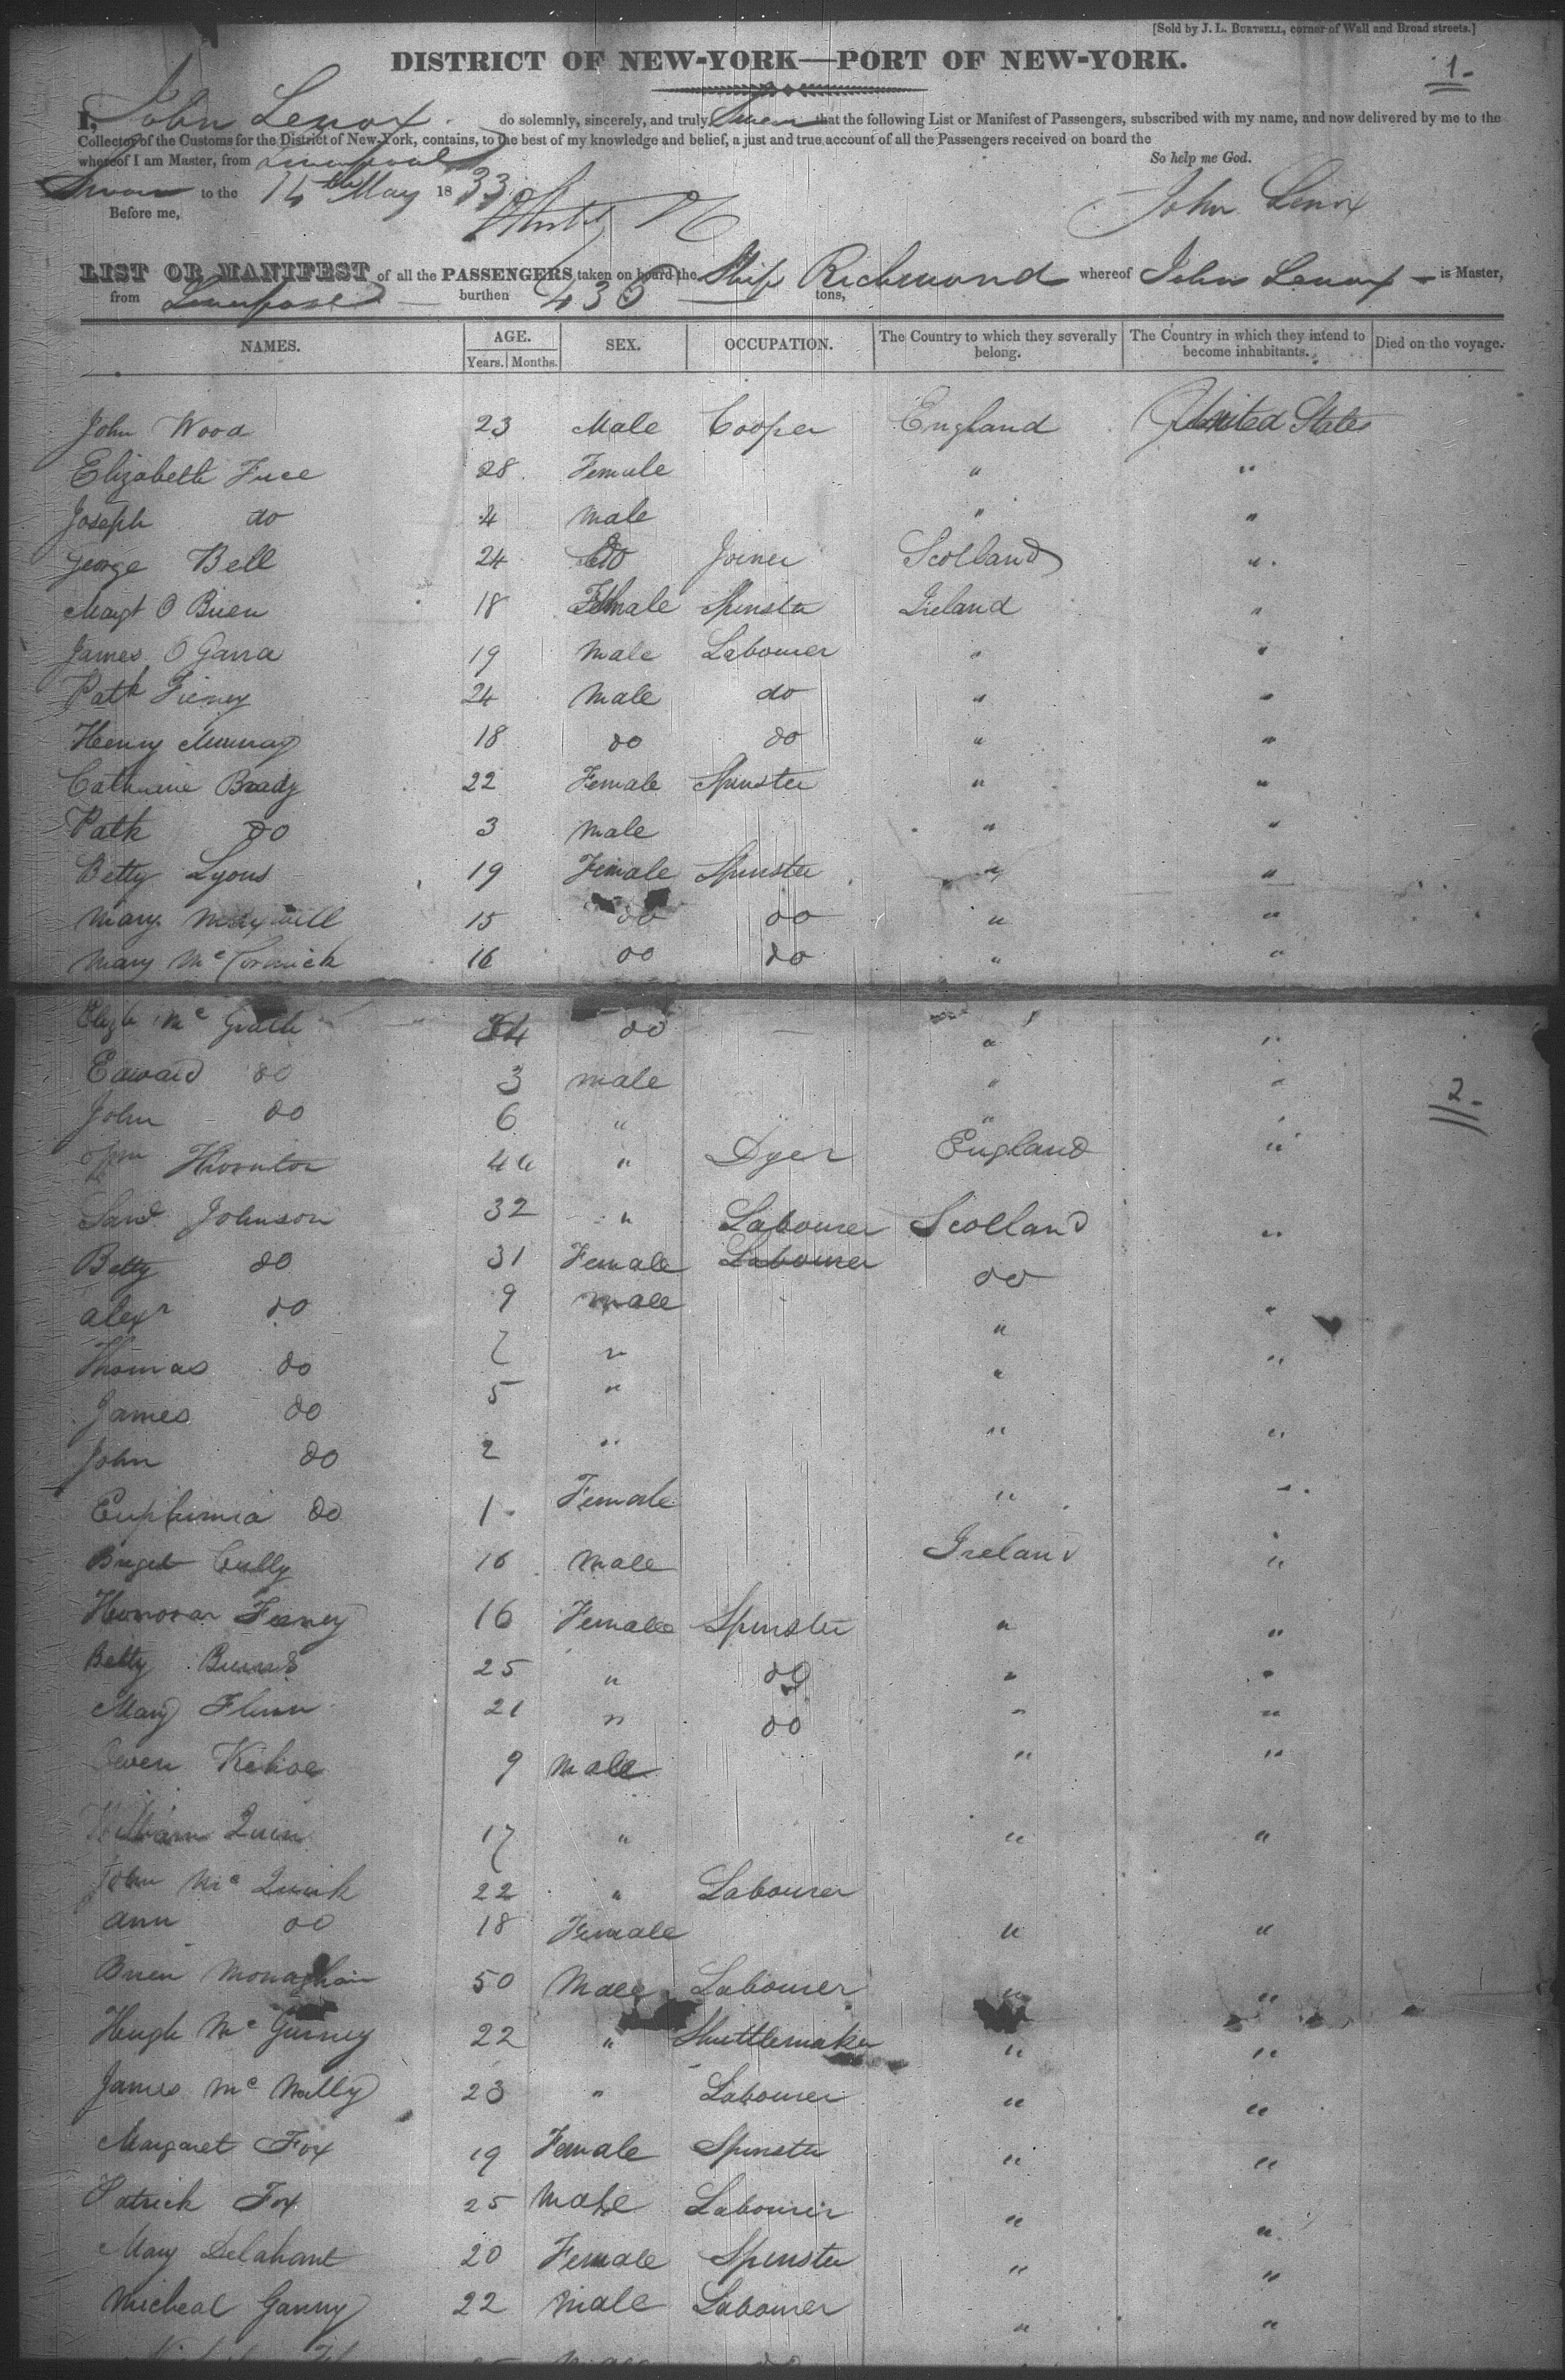 [Sold by J. L. BURTSELL, corner of Wall and Broad streets.]
DISTRICT OF NEW-YORK—PORT OF NEW-YORK.
1-
I, John Lenox do solemnly, sincerely, and truly Swear that the following List or Manifest of Passengers, subscribed with my name, and now delivered by me to the
Collector of the Customs for the District of New-York, contains, to the best of my knowledge and belief, a just and true account of all the Passengers received on board the
whereof I am Master, from Liverpool So help me God.
Sworn to the 14th May 1833 John Lenox
Before me,
LIST OR MANIFEST of all the PASSENGERS taken on board the Ship Richmond whereof John Lenox is Master,
from Liverpool burthen 436 tons,
NAMES. AGE. SEX. OCCUPATION. The Country to which they severally belong. The Country in which they intend to become inhabitants. Died on the voyage.
Years. Months.
John Wood 23 Male Cooper England United States
Elizabeth 28 Female " "
Joseph do 4 Male " "
George Bell 24 Do Joiner Scotland "
Margt O Brien 18 Female Spinster Ireland "
James O Garra 19 Male Labourer " "
Patk Fieney 24 Male do " "
Henry Murray 18 do do " "
Catherine Brady 22 Female Spinster " "
Patk do 3 Male " "
Betty Lyons 19 Female Spinster " "
Mary Maxwell 15 do do " "
Mary McCormick 16 do do " "
Elizth Mc Grath 34 do " "
Edward do 3 male " "
2-
John do 6 " " "
Thornton " Dyer England "
Johnson 32 " Labourer Scotland "
Betty do 31 Female Labourer do
Alexr do 9 male " "
Thomas do 7 " " "
James do 5 "
John do 2 " " "
Euphimia do 1 Female " "
Briget Cully 16 Male Ireland "
Honorar Feeney 16 Female Spinster " "
Betty Burns 25 " do " "
Mary Flinn 21 " do " "
Owen Kehoe 9 Male " "
William Quin 17 " " "
John Mc Quirk 22 " Labourer
Ann do 18 Female " "
Brien Monaghan 50 Male Labourer " "
Hugh Mc Gurney 22 " Shuttlemaker " "
James Mc Nally 23 " Labourer " "
Margaret Fox 19 Female Spinster " "
Patrick Fox 25 Male Labourer " "
Mary Delahant 20 Female Spinster " "
Micheal Ganny 22 Male Labourer " "